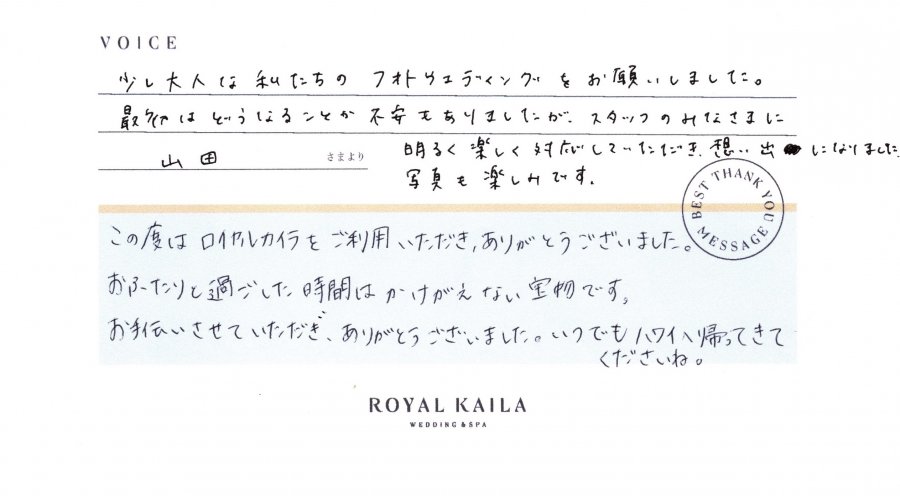 VOICE
少し大人な私たちのフォトウェディングをお願いしました。
最初はどうなることか不安もありましたが、スタッフのみなさまに
明るく楽しく対応していただき、想い出になりました
写真も楽しみです。
山田 さまより
BEST THANK YOU MESSAGE
この度はロイヤルカイラをご利用いただき、ありがとうございました。
おふたりと過ごした時間はかけがえない宝物です。
お手伝いさせていただぎ、ありがとうございました。いつでもハワイへ帰ってきて
くださいね。
ROYAL KAILA
WEDDING & SPA